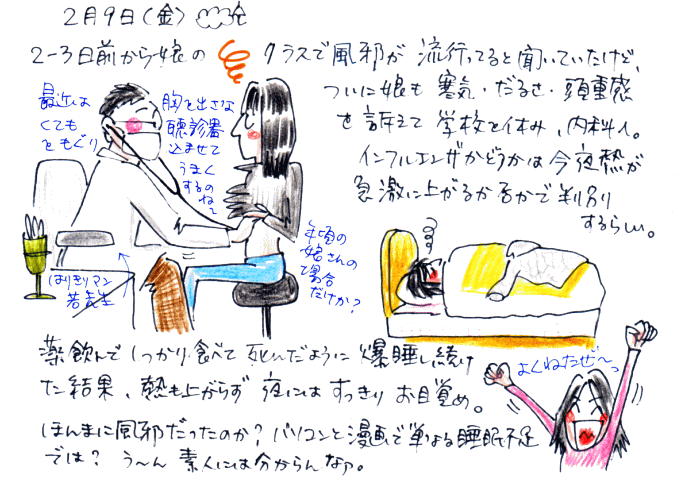 2月9日(金)
2-3日前から娘の クラスで風邪が 流行ってると聞いていたけど、
ついに娘も 寒気・だるさ・頭重感
を訴えて 学校を休み、内科へ。
インフルエンザかどうかは今夜熱が
急激に上がるか否かで判別
するらしい。
最近は
胸を出さな
くても
聴診器
をもぐり
込ませて
うまく
するのね〜
年頃の
娘さんの
場合
だけか?
はりきりマン
若先生
薬飲んで しっかり食べて 死んだように 爆睡し続け
た結果、熱も上がらず 夜には すっきり お目覚め。
よくねたぜ〜っ
ほんまに風邪だったのか? パソコンと漫画で単なる睡眠不足
では? う〜ん 素人には分からんなァ。